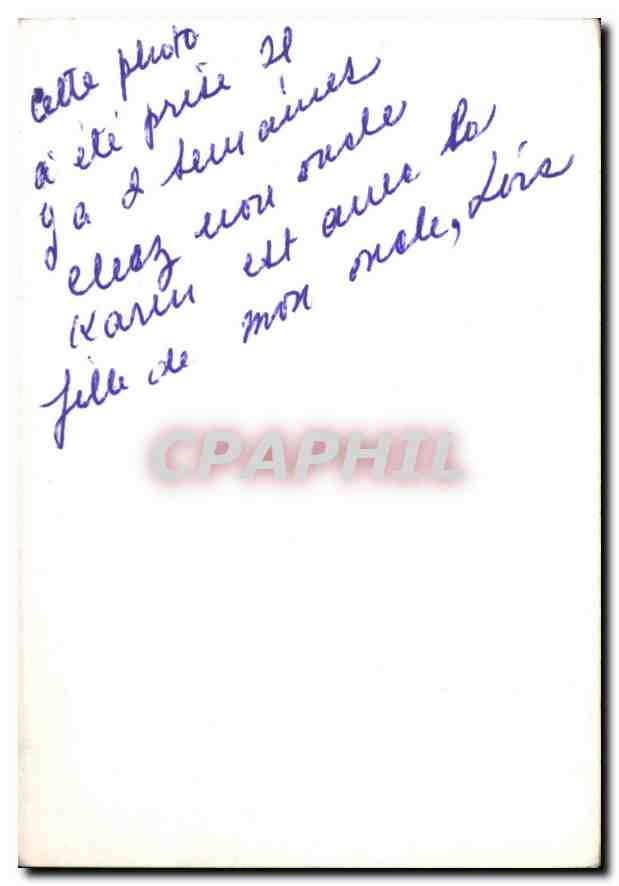 cette photo
a été prise Il
y a 2 semaines
chez mon oncle
Karin est avec la
fille de mon oncle, Lois
CPAPHIL